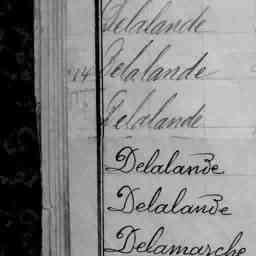 Delalande
14 Delalande
Delalande
Delalande
Delalande
Delamarche